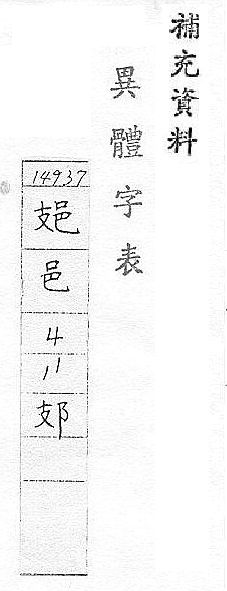 補充資料
異體字表
14937
邑
4
11
𨙸